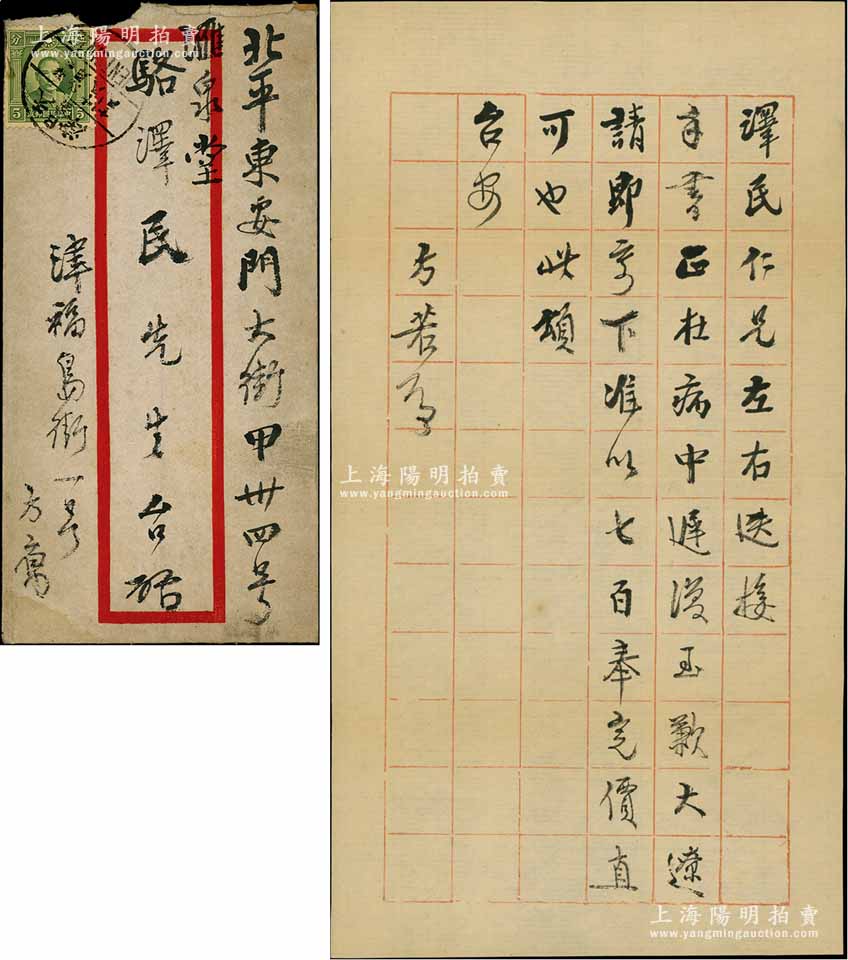 北平東安門大街甲卅四号
雁泉堂
駱澤民先生台啓
津福島街一号
方寓
分
5
5
澤民仁兄左右迭接
手書正在病中遲復至歉大遼
請即寄下準以七百奉完價直
可也此頌
台安
方若頓
上海陽明拍賣
www.yangmingauction.com
上海陽明拍賣
www.yangmingauction.com
上海陽明拍賣
www.yangmingauction.com